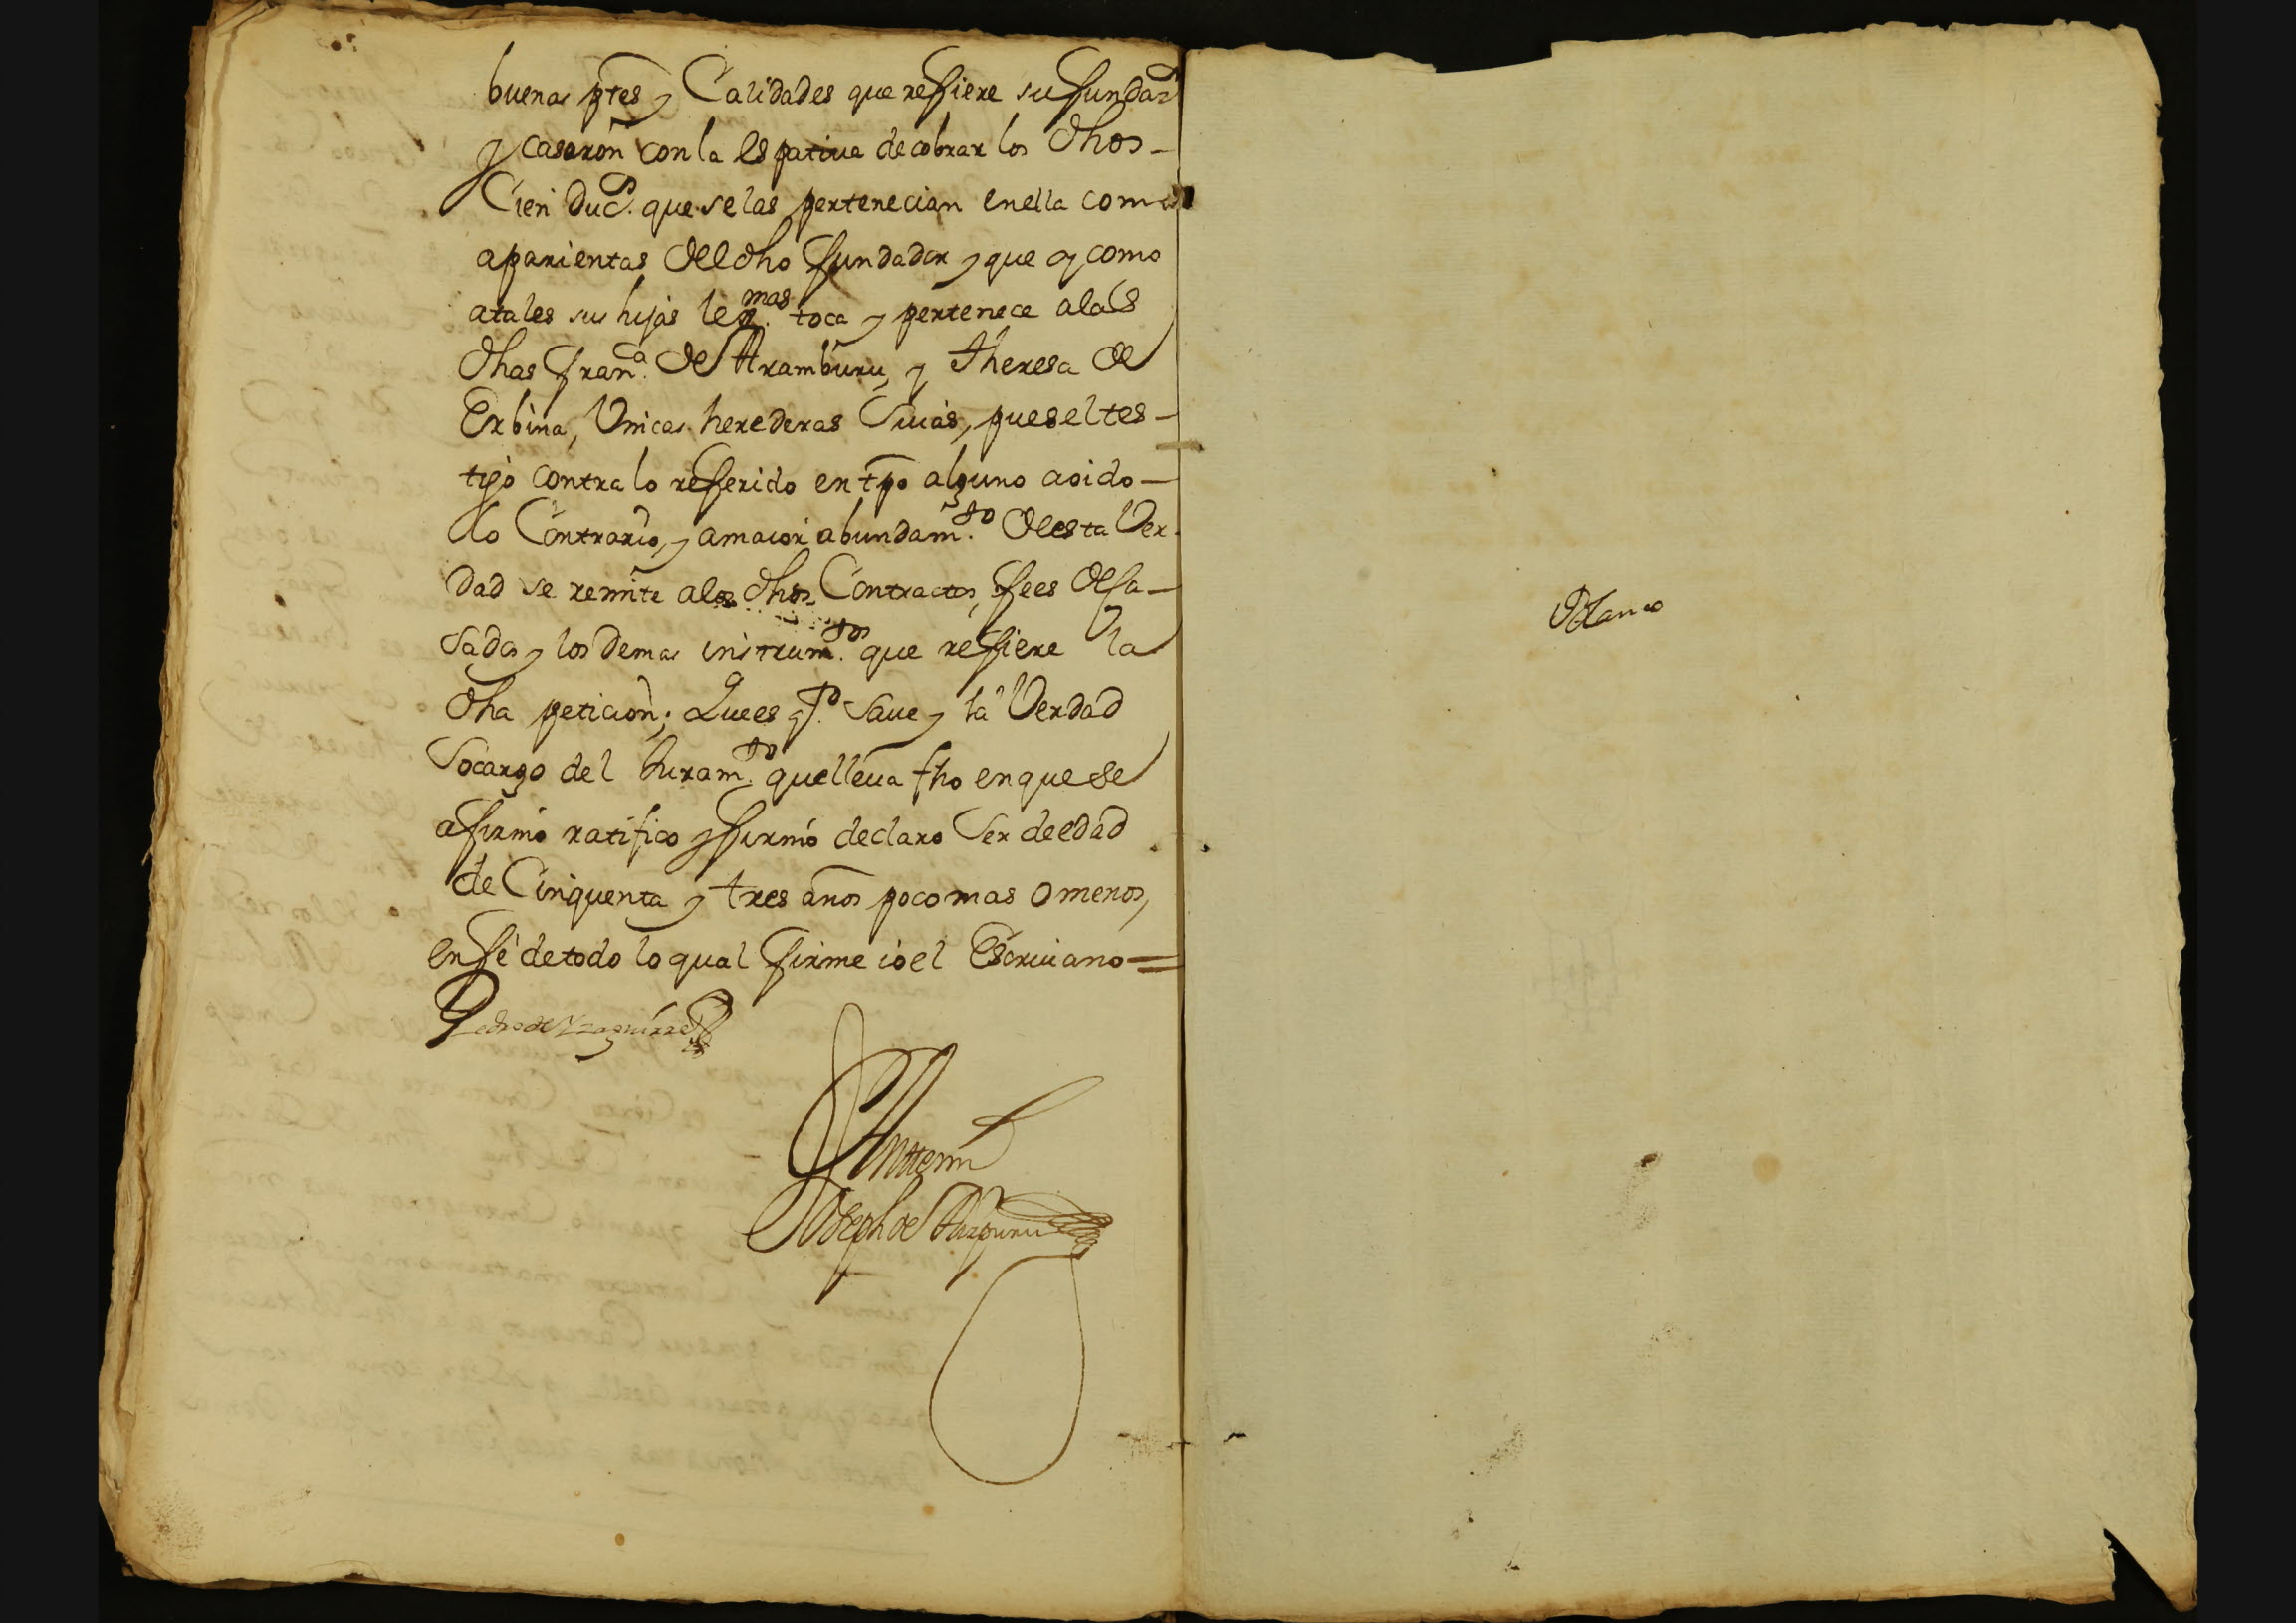 buenas ptes y Calidades que reffiere su ffundaz.n
y casaron con la espatiua de cobrar los dhos
Cien Duc.s que se las pertenecian en ella como
a parientas del dho ffundador y que oy como
a tales sus hijas leg.mas toca y pertenece a las
dhas Fran.ca de Aramburu, y Theresa de
Erbina, Vnicas herederas Suias, pues el tes-
tigo contra lo refferido en tpo alguno a oido
lo Contrario, y a maior abundam.to de esta Ver-
dad se remite a los dhos Contractos, ffees de Ca-
sados y los demas instrum.tos que reffiere la
dha peticion; Que es q.to saue y la Verdad
So cargo del Juram.to que lleua fho en que se
affirmo ratifico y ffirmó declaro Ser de edad
de Cinquenta y tres años poco mas o menos,
en ffe de todo lo qual ffirme io el Escriuano =
Pedro de Yzaguirre
Ante mi
Joseph de Aizpuru
Blanco